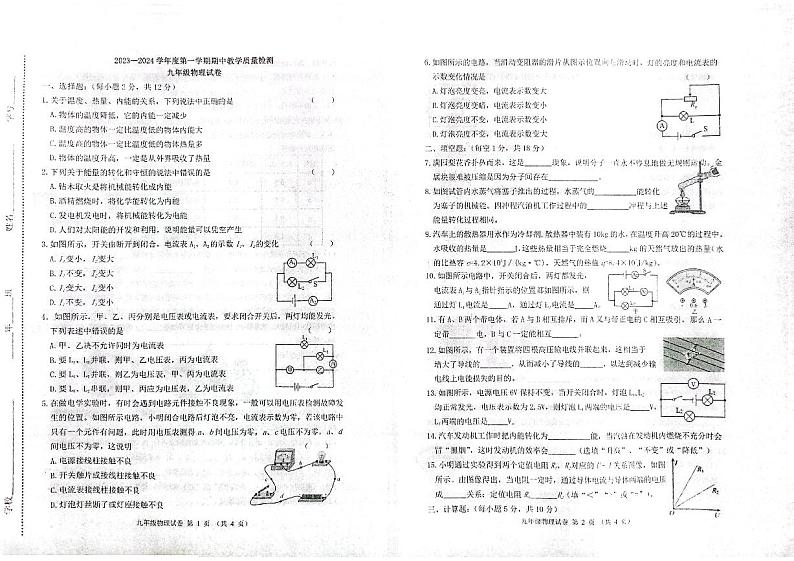 2023—2024学年度第一学期期中教学质量检测
九年级物理试卷
一、选择题：(每小题2分，共12分)
1.关于温度、热量、内能的关系，下列说法中正确的是 ( )
A.物体的温度降低，它的内能一定减少
B.温度高的物体一定比温度低的物体内能大
C.温度高的物体一定比温度低的物体热量多
D.物体的温度升高，一定是从外界吸收了热量
2.下列关于能量的转化和守恒的说法中错误的是 ( )
A.钻木取火是将机械能转化成内能
B.酒精燃烧时，将化学能转化为内能
C.发电机发电时，将机械能转化为电能
D.人们对太阳能的开发和利用，说明能量可以凭空产生
3.如图所示，开关由断开到闭合，电流表A₁、A₂的示数I₁、I₂的变化 ( )
A.I₁不变，I₂变大
B.I₁变大，I₂不变
C.I₁变大，I₂变小
D.I₁变大，I₂变大
4.如图所示，甲、乙、丙分别是电压表或电流表，要求闭合开关后，两灯均能发光，
下列表述中错误的是 ( )
A.甲、乙决不允许同时为电流表
B.要L₁、L₂并联，则甲、乙电压表、丙为电流表
C.要L₁、L₂并联，则甲、乙电流表、丙为电压表
D.要L₁、L₂串联，则甲、丙应为电压表，乙为电流表
5.在做电学实验时，有时会遇到电路元件接触不良现象，一般可以用电压表检测故障发
生的位置。如图所示电路，小明闭合电路后灯泡不亮，电流表示数为零，若该电路中
只有一个元件有问题，此时用电压表测得a、b间电压为零，a、c电压不为零，a、d
间电压不为零，这说明 ( )
A.电源接线柱接触不良
B.开关触片或接线柱接触不良
C.电流表接线柱接触不良
D.灯泡灯丝断了或灯座接触不良
九年级物理试卷 第 1 页 (共 4 页)
6.如图所示的电路，当滑动变阻器的滑片从图示位置向右滑动时，灯的亮度和电流表的
示数变化情况是 ( )
A.灯泡亮度变亮，电流表示数变大
B.灯泡亮度变暗，电流表示数变小
C.灯泡亮度不变，电流表示数变小
D.灯泡亮度不变，电流表示数变大
二、填空题：(每空1分，共18分)
7.满园梨花香扑鼻而来，这是______现象，说明分子一直永不停息地做无规则运动，金
属块很难被压缩是因为分子间存在______。
8.如图试管内水蒸气将塞子推出的过程，水蒸气的______能转化
为塞子的机械能，四冲程汽油机工作过程中的______冲程与上述
能量转化过程相同。
9.汽车上的散热器用水作为冷却剂，散热器中装有10kg的水，在温度升高20℃的过程中，
水吸收的热量是______J，这些热量相当于完全燃烧______kg的天然气放出的热量(水
的比热容c=4.2×10³J/(kg·℃)，天然气的热值q=8.4×10⁷J/kg)。
10.如图所示电路中，开关闭合后，两灯都发光，
电流表A₁与A₂指针指示的位置都如图所示，则
通过灯L₁电流是____A，通过灯L₂电流是____A。
11.有A、B两个带电体，若A与B相互排斥，而A又与带正电的C相互吸引，那么A一
定带____电，B与C一定能相互____。
12.如图所示，有一个装置将四根高压输电线并联起来，这相当于
增大了导线的______，从而减小了导线的______，以达到减少输
电线上电能损失的目的。
13.如图所示，电源电压6V保持不变，当开关闭合时，灯泡L₁、L₂
均正常发光，电压表示数为2.5V，则灯泡L₁两端的电压是____V，
L₂两端的电压是____V。
14.汽车发动机工作时把内能转化为______能，当汽油在发动机内燃烧不充分时会
冒“黑烟”，这时发动机的效率会______(选填“升高”、“不变”或“降低”)
15.小明通过实验得到两个定值电阻R₁、R₂对应的I-U关系图像，如图
所示，由图像得出，当电阻一定时，通过导体电流与导体两端的电压
成____关系；定值电阻R₁____R₂(填“<”“>”或“=”)
三、计算题：(每小题5分，共10分)
九年级物理试卷 第 2 页 (共 4 页)
学号
姓名
班
年
学校